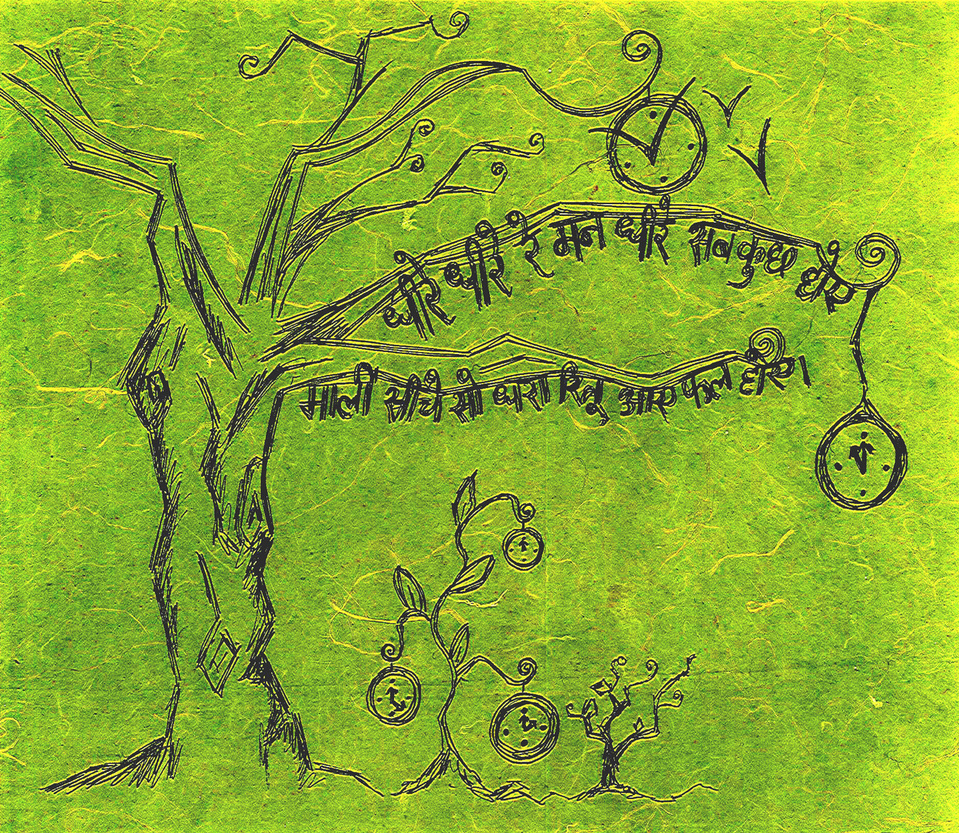 धीरे धीरे रे मन धीरे सब कुछ होए
माली सींचे सो धरा रितू आए फल होए।